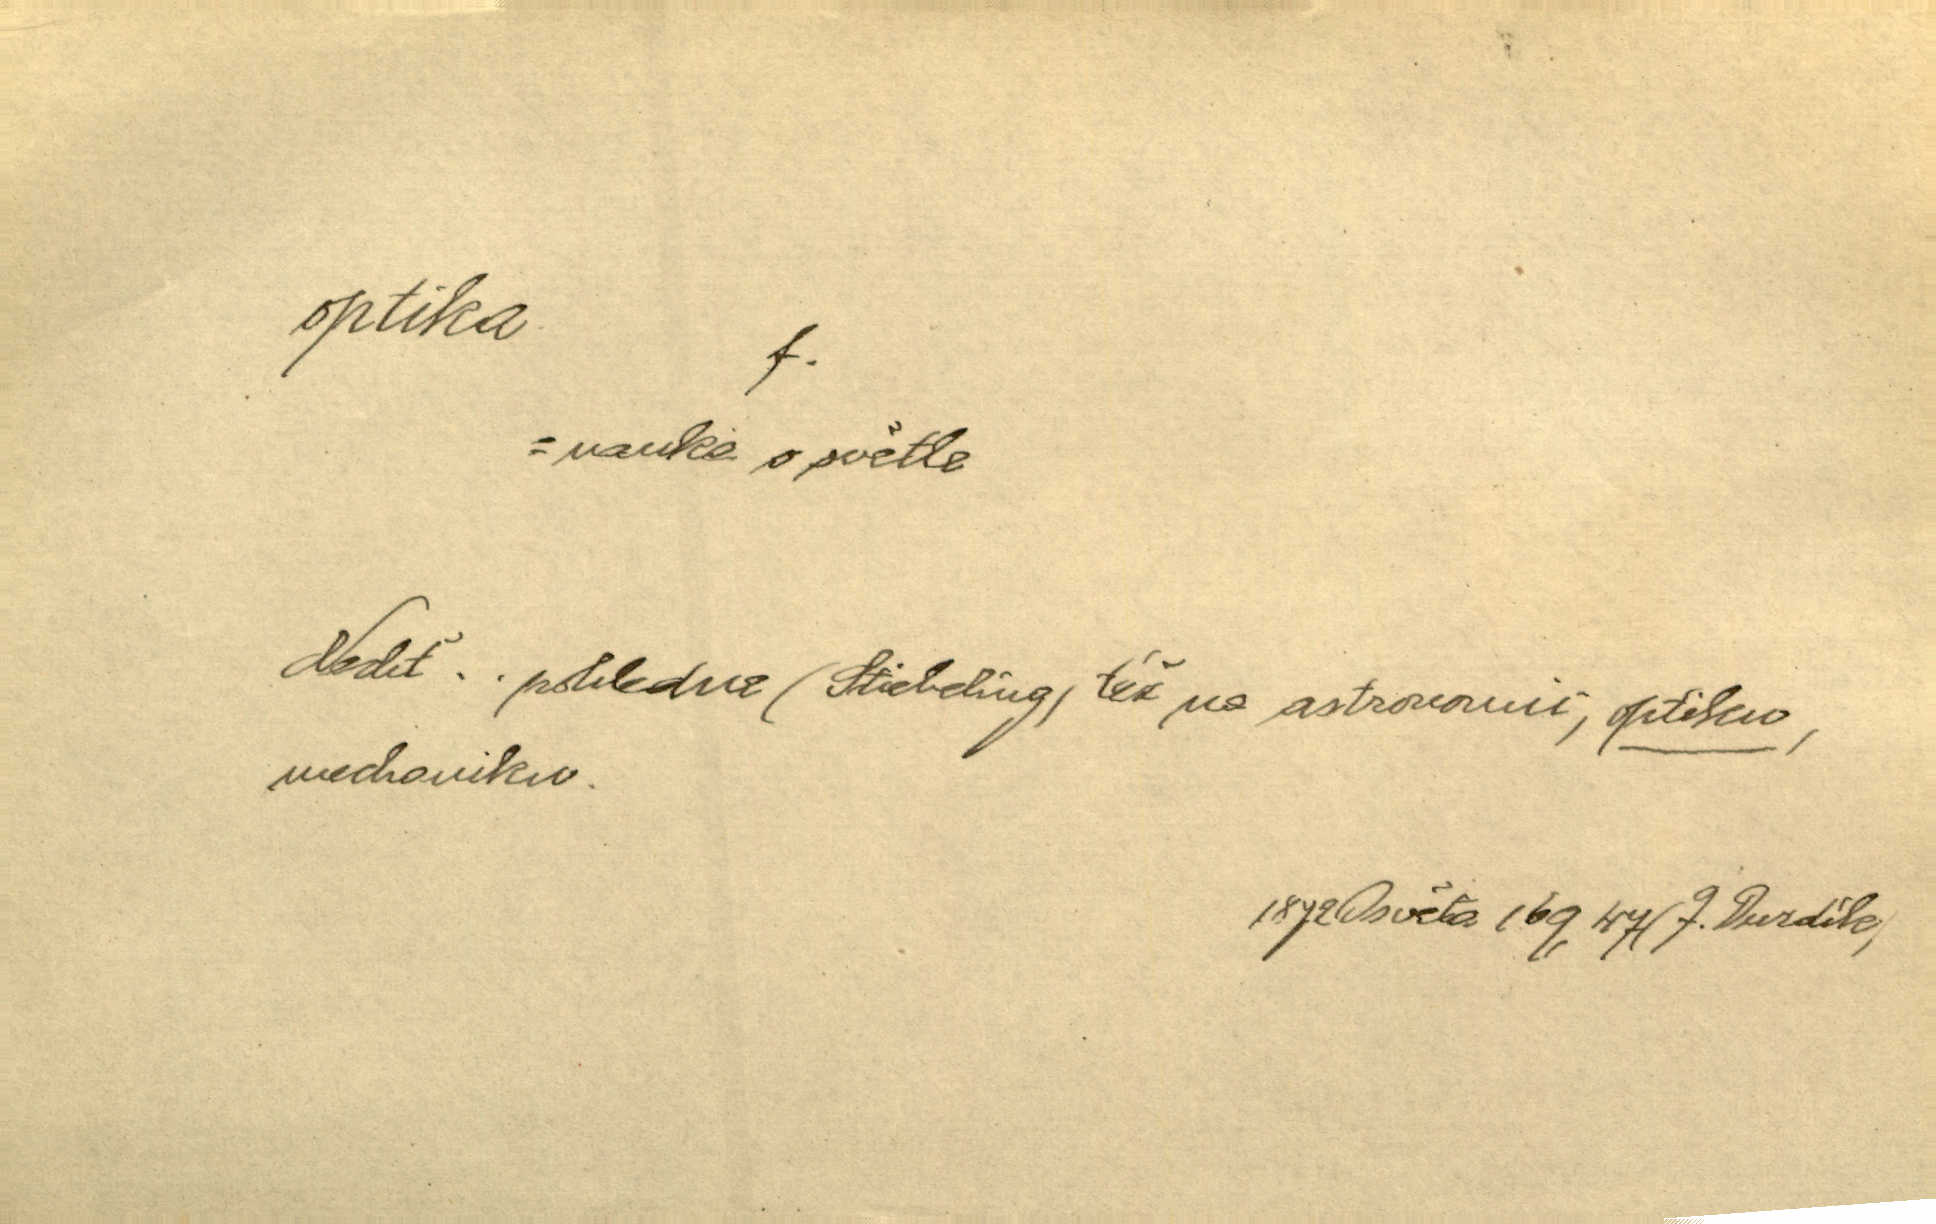 optika
f.
= nauka o světle
Nechť . . pohledne (Stiebeling) též na astronomii, optiku,
mechaniku.
1872 Osvěta 169 47 (J. Durdík)